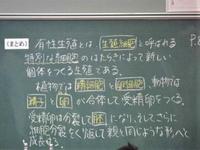 (まとめ)
有性生殖とは、生殖細胞と呼ばれる
特別な細胞のはたらきによって新しい
個体をつくる生殖である。
植物では精細胞と卵細胞、動物では
精子と卵が合体して受精卵をつくる。
受精卵は分裂して胚になり、そしてさらに
細胞分裂をくり返して親と同じような形へと
成長する。
P.8